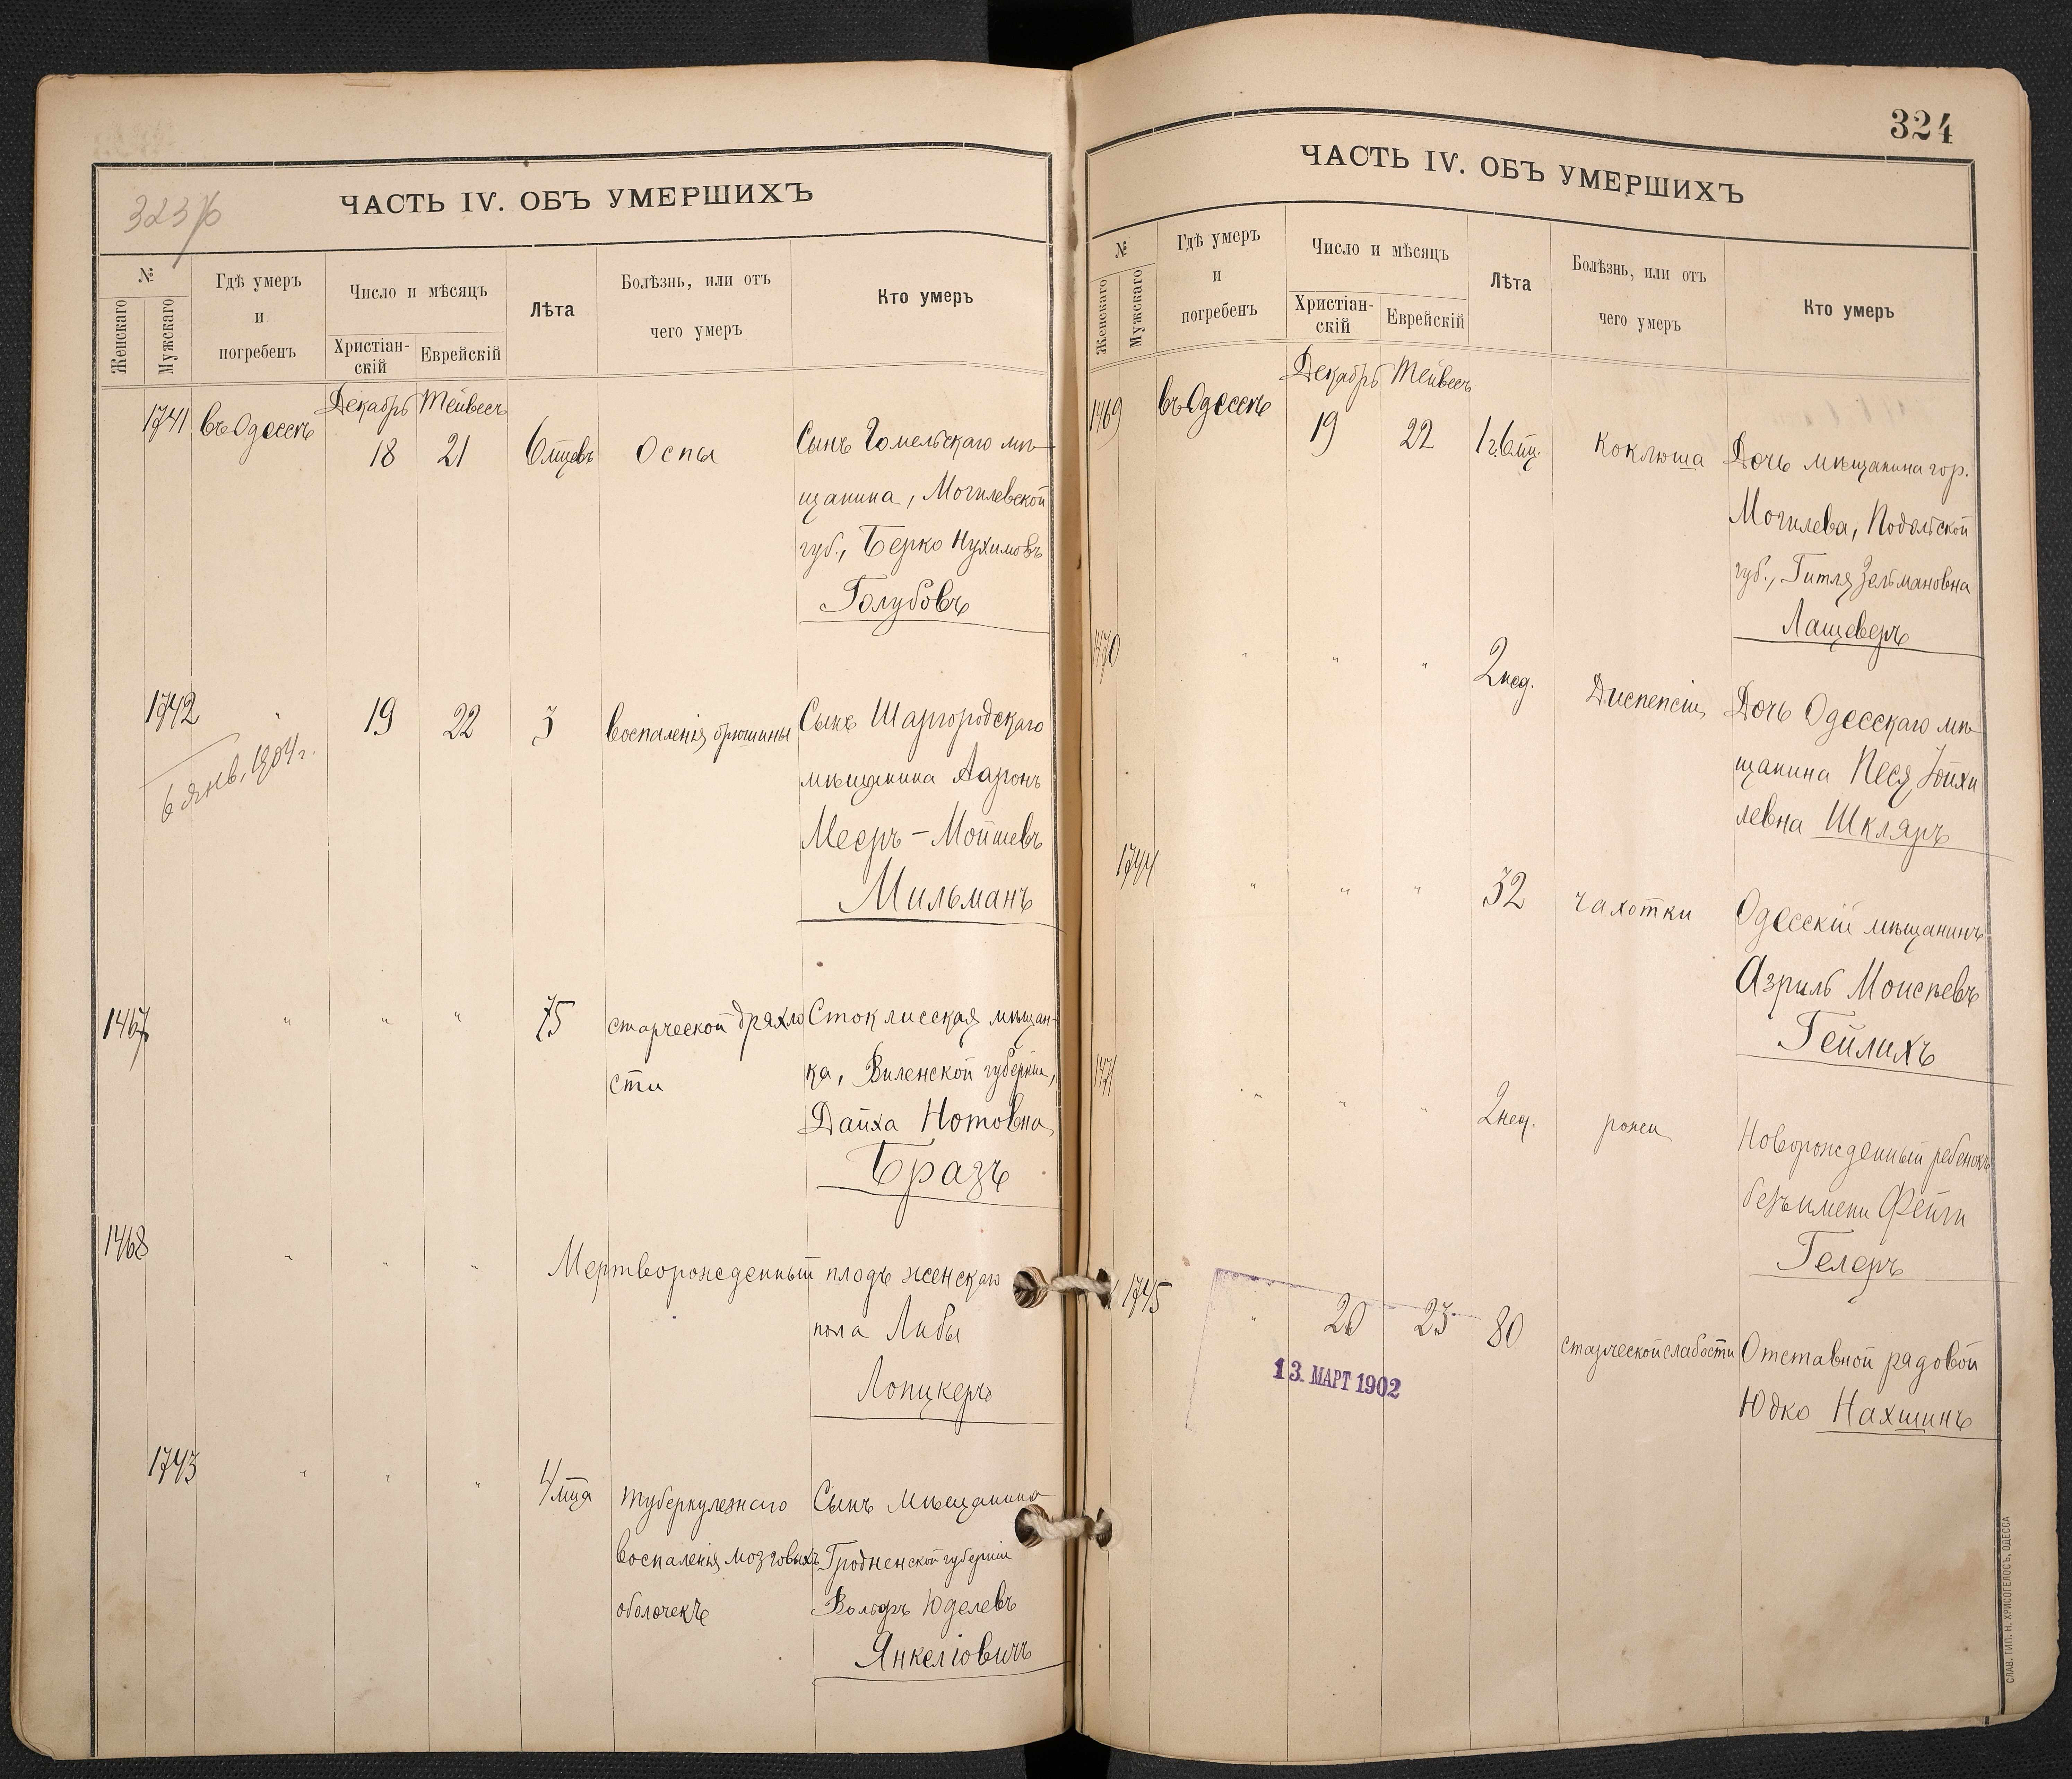 323 об
ЧАСТЬ IV. ОБЪ УМЕРШИХЪ
№
Женскаго
Мужскаго
Гдѣ умеръ
и
погребенъ
Число и мѣсяцъ
Христіан-
скій
Еврейскій
Лѣта
Болѣзнь, или отъ
чего умеръ
Кто умеръ
Декабрь Тейвесъ
1741 въ Одессѣ 18 21 6 мцевъ Оспы Сынъ Гомельскаго мѣ-
щанина, Могилевской
губ., Берко Нухимовъ
Голубовъ
1742 " 19 22 3 воспаленія брюшины Сынъ Шаргородскаго
6 Янв. 1904 г.
мѣщанина Ааронъ
Мееръ-Мойшевъ
Мильманъ
1467 " " " 75 старческой дряхло Стоклисская мѣщан-
сти ка, Виленской губерніи,
Дайха Нотовна
Бразъ
1468 " " " Мертворожденный плодъ женскаго
пола Либы
Лопикеръ
1743 " " " 4 мца туберкулезнаго Сынъ мѣщанина
воспаленія мозговыхъ Гродненской губерніи
оболочекъ Вольфъ Юделевъ
Янкеліовичъ
324
ЧАСТЬ IV. ОБЪ УМЕРШИХЪ
№
Женскаго
Мужскаго
Гдѣ умеръ
и
погребенъ
Число и мѣсяцъ
Христіан-
скій
Еврейскій
Лѣта
Болѣзнь, или отъ
чего умеръ
Кто умеръ
Декабрь Тейвесъ
1469 въ Одессѣ 19 22 1 г. 6 мц. Коклюша Дочь мѣщанина гор.
Могилева, Подольской
губ., Гитля Зельмановна
Лащеверъ
1470 " " " 2 нед. Диспепсіи Дочь Одесскаго мѣ-
щанина Песя Іойхи
левна Шкляръ
1744 " " " 32 чахотки Одесскій мѣщанинъ
Азриль Моисѣевъ
Гейлихъ
1471 " " " 2 нед. рожи Новорожденный ребенокъ
безъ имени Фейги
Гелеръ
1745 " 20 23 80 старческой слабости Отставной рядовой
Юдко Нахшинъ
13. МАРТ 1902
СЛАВ. ТИП. Н. ХРИСОГЕЛОСЪ, ОДЕССА